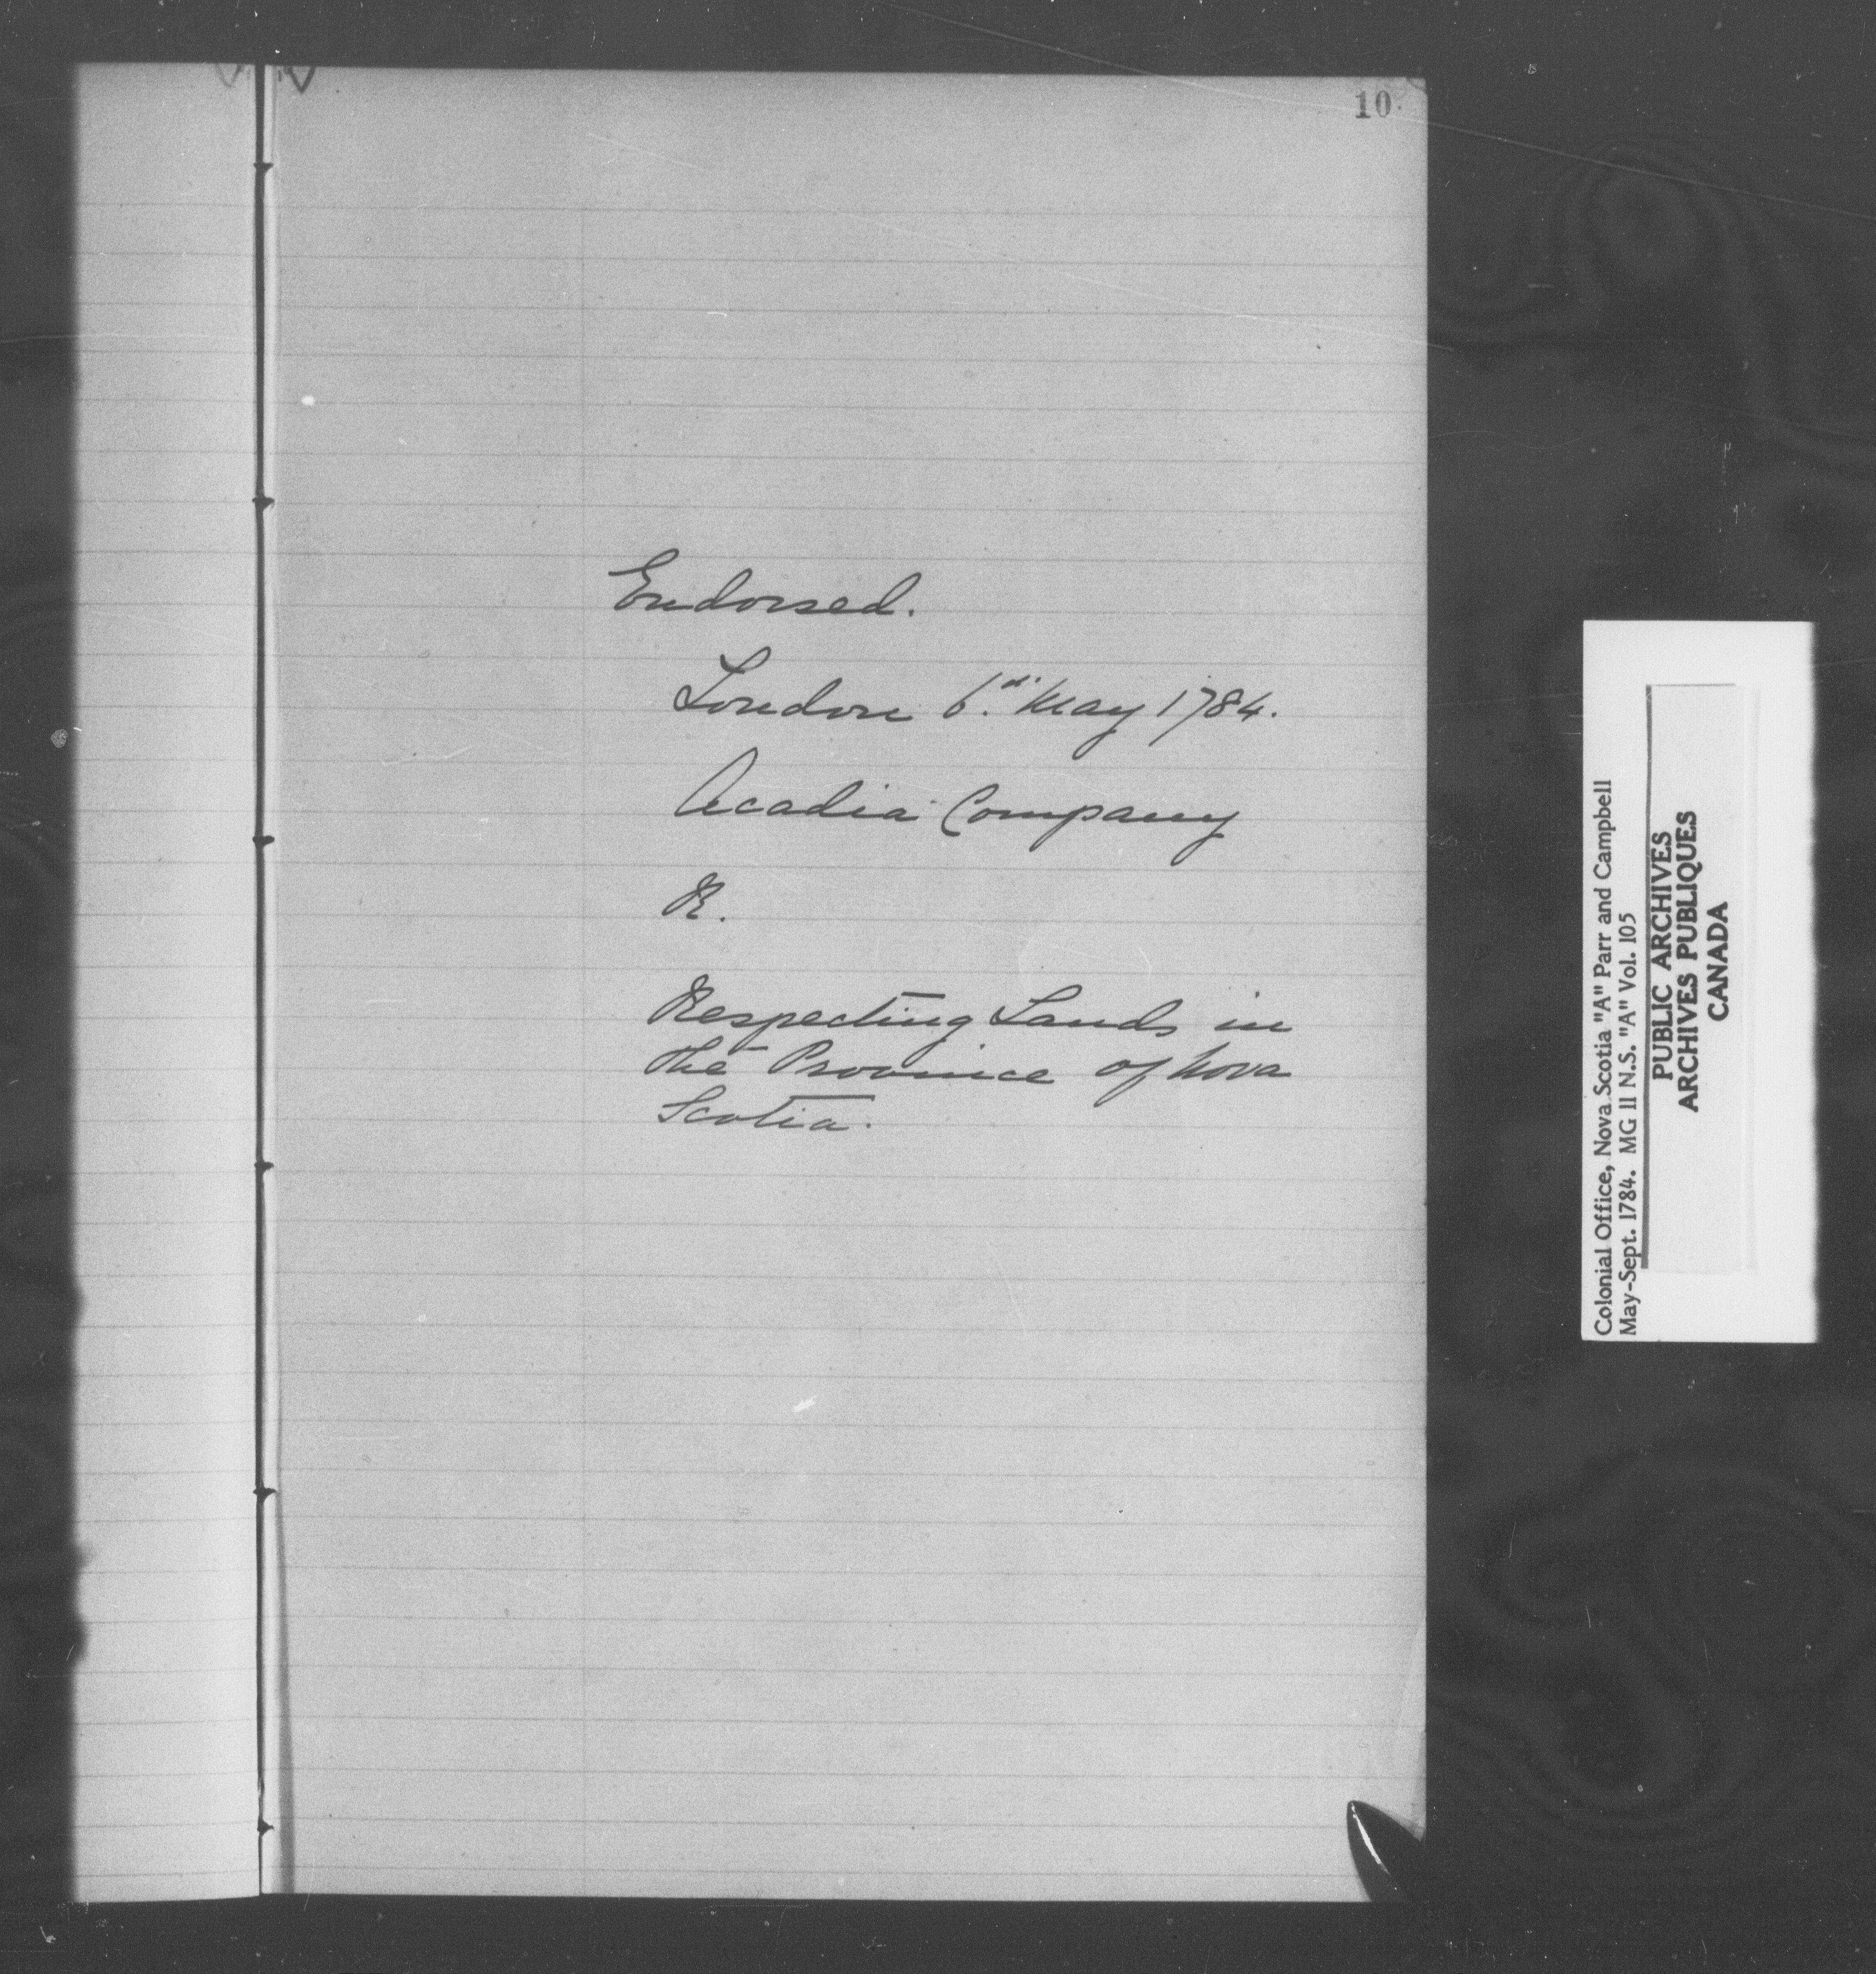 10
Endorsed.
London 6th. May 1784.
Acadia Company
R.
Respecting Lands in
the Province of Nova
Scotia.
Colonial Office, Nova Scotia "A" Parr and Campbell
May-Sept. 1784. MG 11 N.S. "A" Vol. 105
PUBLIC ARCHIVES
ARCHIVES PUBLIQUES
CANADA